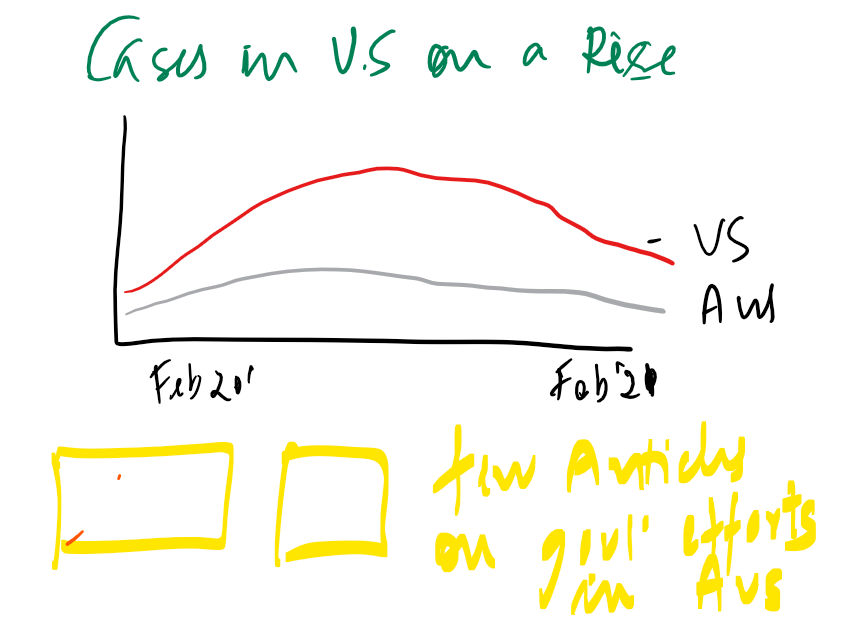 Cases in U.S on a Rise
US
Aus
Feb 20'
Feb '21
few Articles
on govt' efforts
in Aus